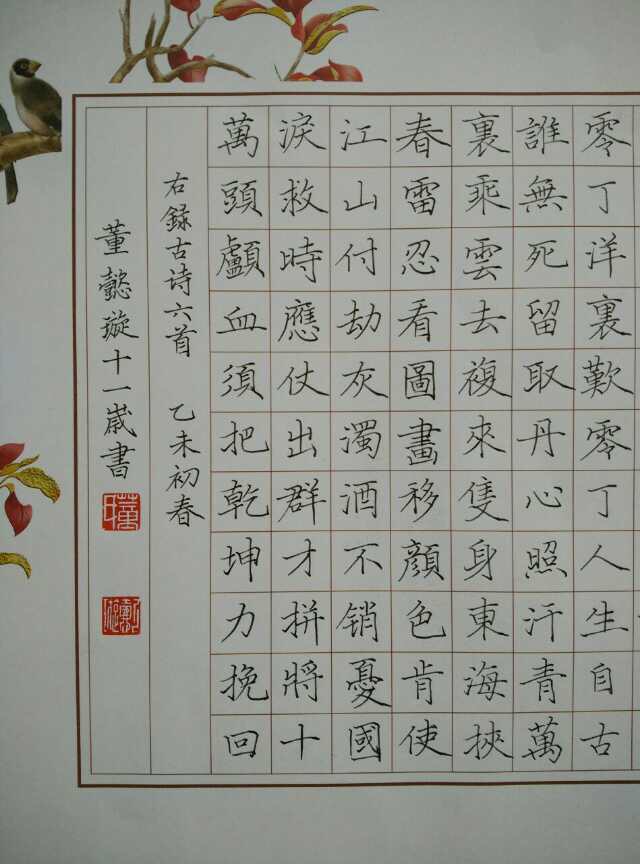 零丁洋裏歎零丁人生自古
誰無死留取丹心照汗青萬
裏乘雲去複來隻身東海挾
春雷忍看圖畫移顔色肯使
江山付劫灰濁酒不销憂國
淚救時應仗出群才拼將十
萬頭顱血須把乾坤力挽回
右録古诗六首 乙未初春
董懿璇十一歲書